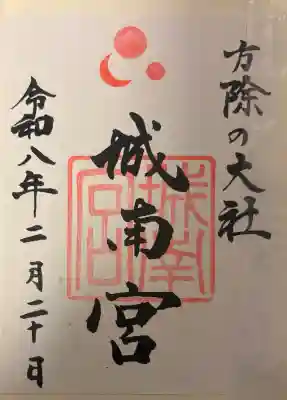 方除の大社
城南宮
令和八年二月二十日
城南宮